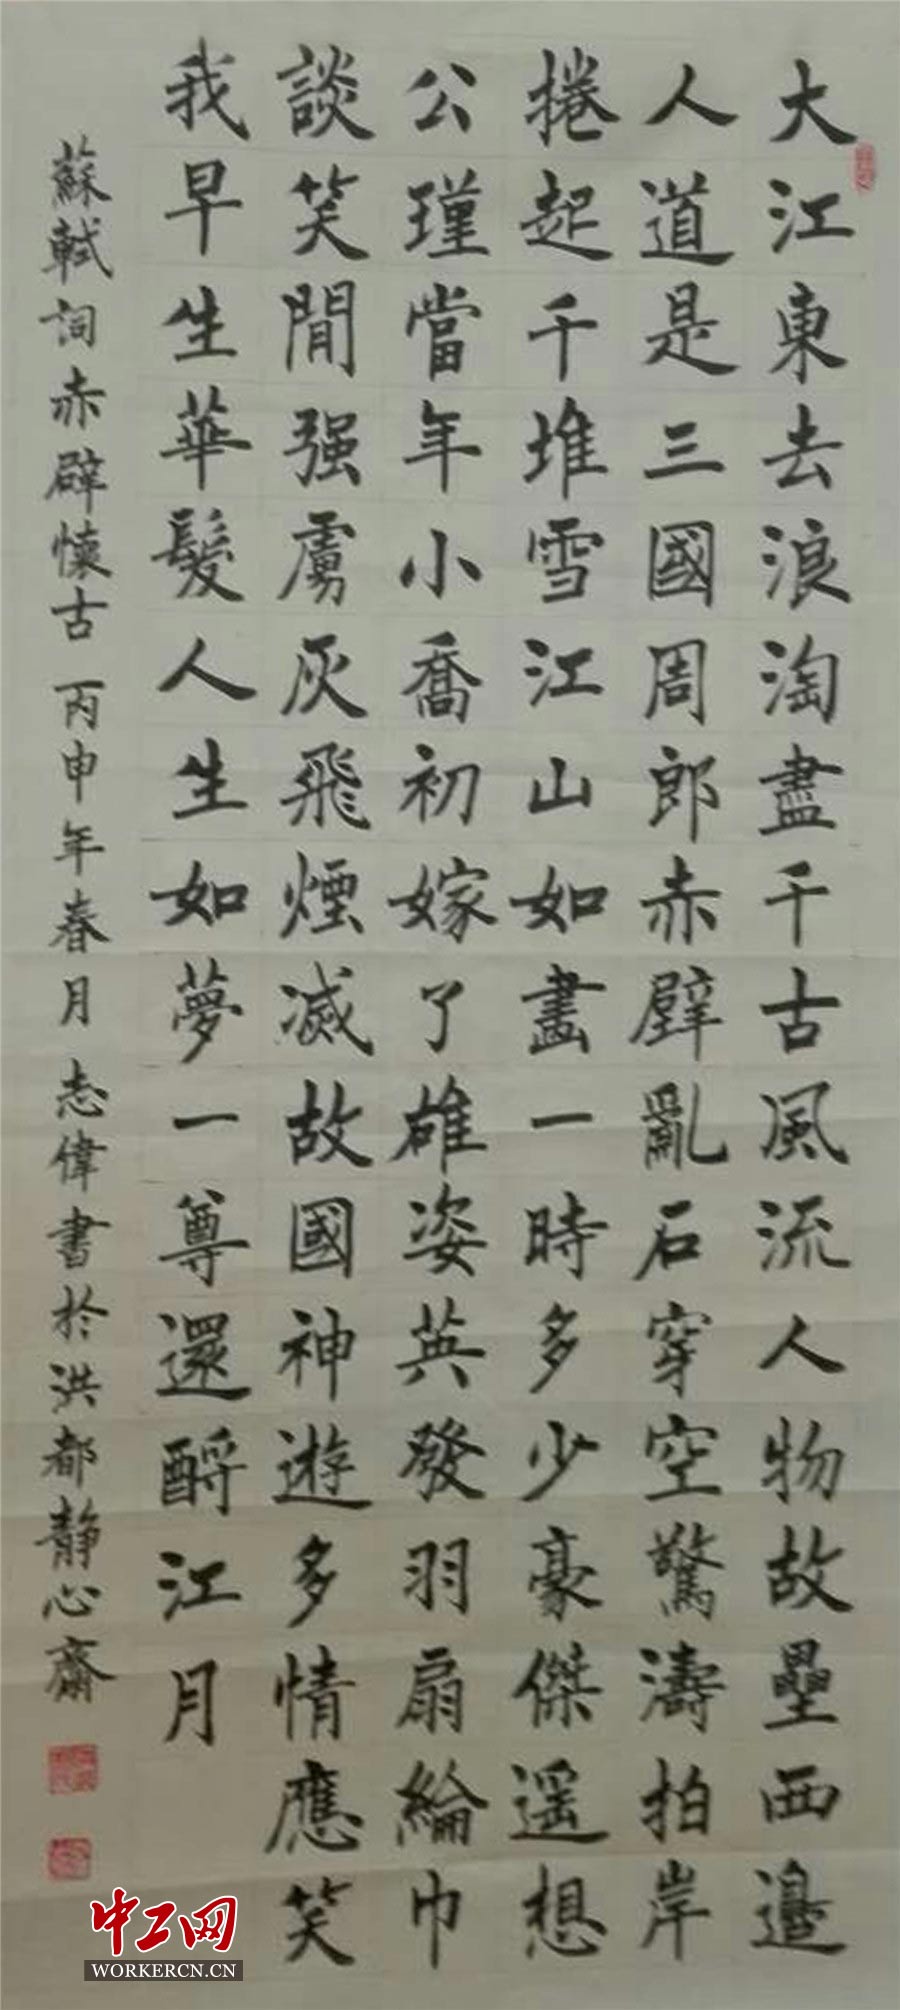 大江東去浪淘盡千古風流人物故壘西邊
人道是三國周郎赤壁亂石穿空驚濤拍岸
捲起千堆雪江山如畫一時多少豪傑遥想
公瑾當年小喬初嫁了雄姿英發羽扇綸巾
談笑閒强虜灰飛煙滅故國神遊多情應笑
我早生華髮人生如夢一尊還酹江月
蘇軾詞赤辟懷古 丙申年春月 志偉書於洪都静心齋
中工网
WORKERCN.CN